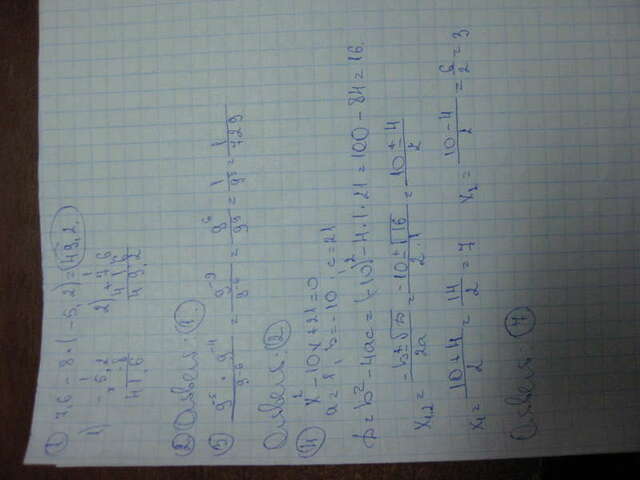 ① 7,6 - 8 · (-5,2) = 49,2.
1) -5,2
-8
41,6
2) +7,6
41,6
49,2
② Ответ: 1.
③ 9⁻⁵ · 9⁻⁴ / 9⁻⁶ = 9⁻⁹ / 9⁻⁶ = 9⁶ / 9⁹ = 1 / 9³ = 1 / 729
Ответ: 2
④ x² - 10x + 21 = 0
a = 1, b = -10, c = 21
D = b² - 4ac = (-10)² - 4 · 1 · 21 = 100 - 84 = 16.
x₁,₂ = -b ± √D / 2a = -10 ± √16 / 2 · 1 = -10 ± 4 / 2
x₁ = 10 + 4 / 2 = 14 / 2 = 7 x₂ = 10 - 4 / 2 = 6 / 2 = 3
Ответ: 7